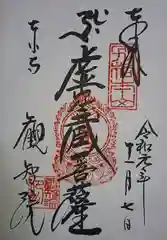 奉拝
令和元年
十一月七日
虚空蔵菩薩
東寺
観智院